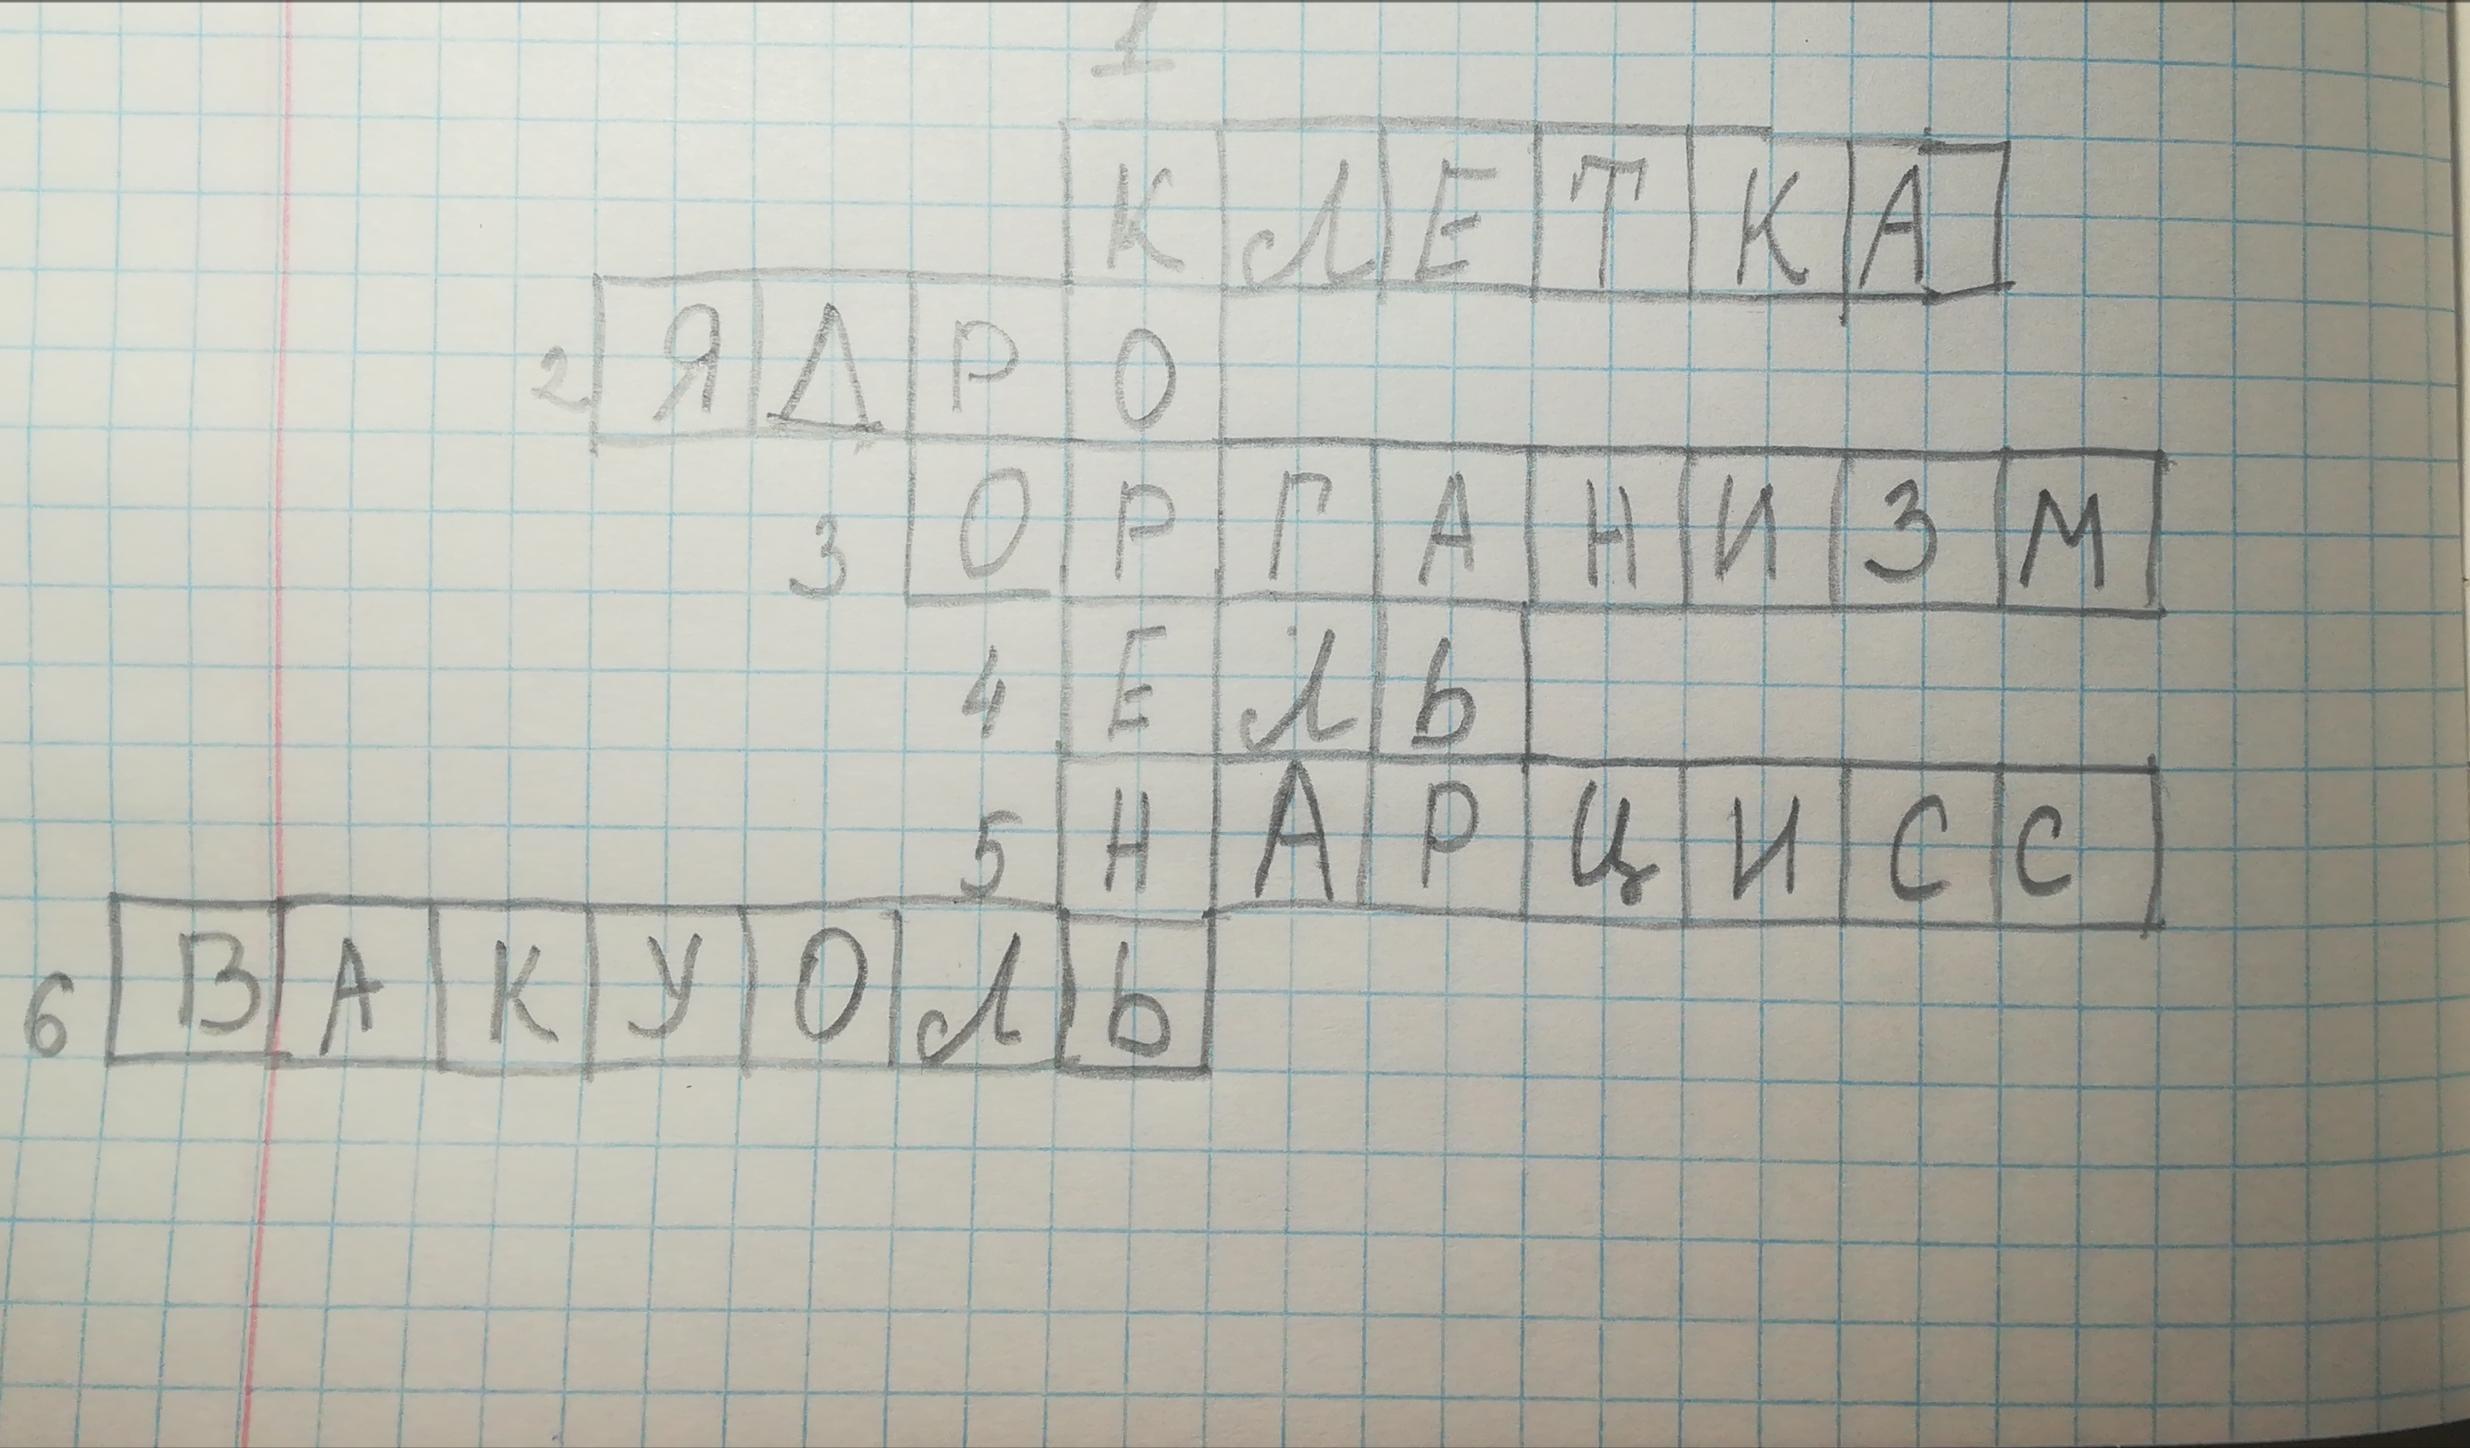 1
КЛЕТКА
2 ЯДРО
3 ОРГАНИЗМ
4 ЕЛЬ
5 НАРЦИСС
6 ВАКУОЛЬ